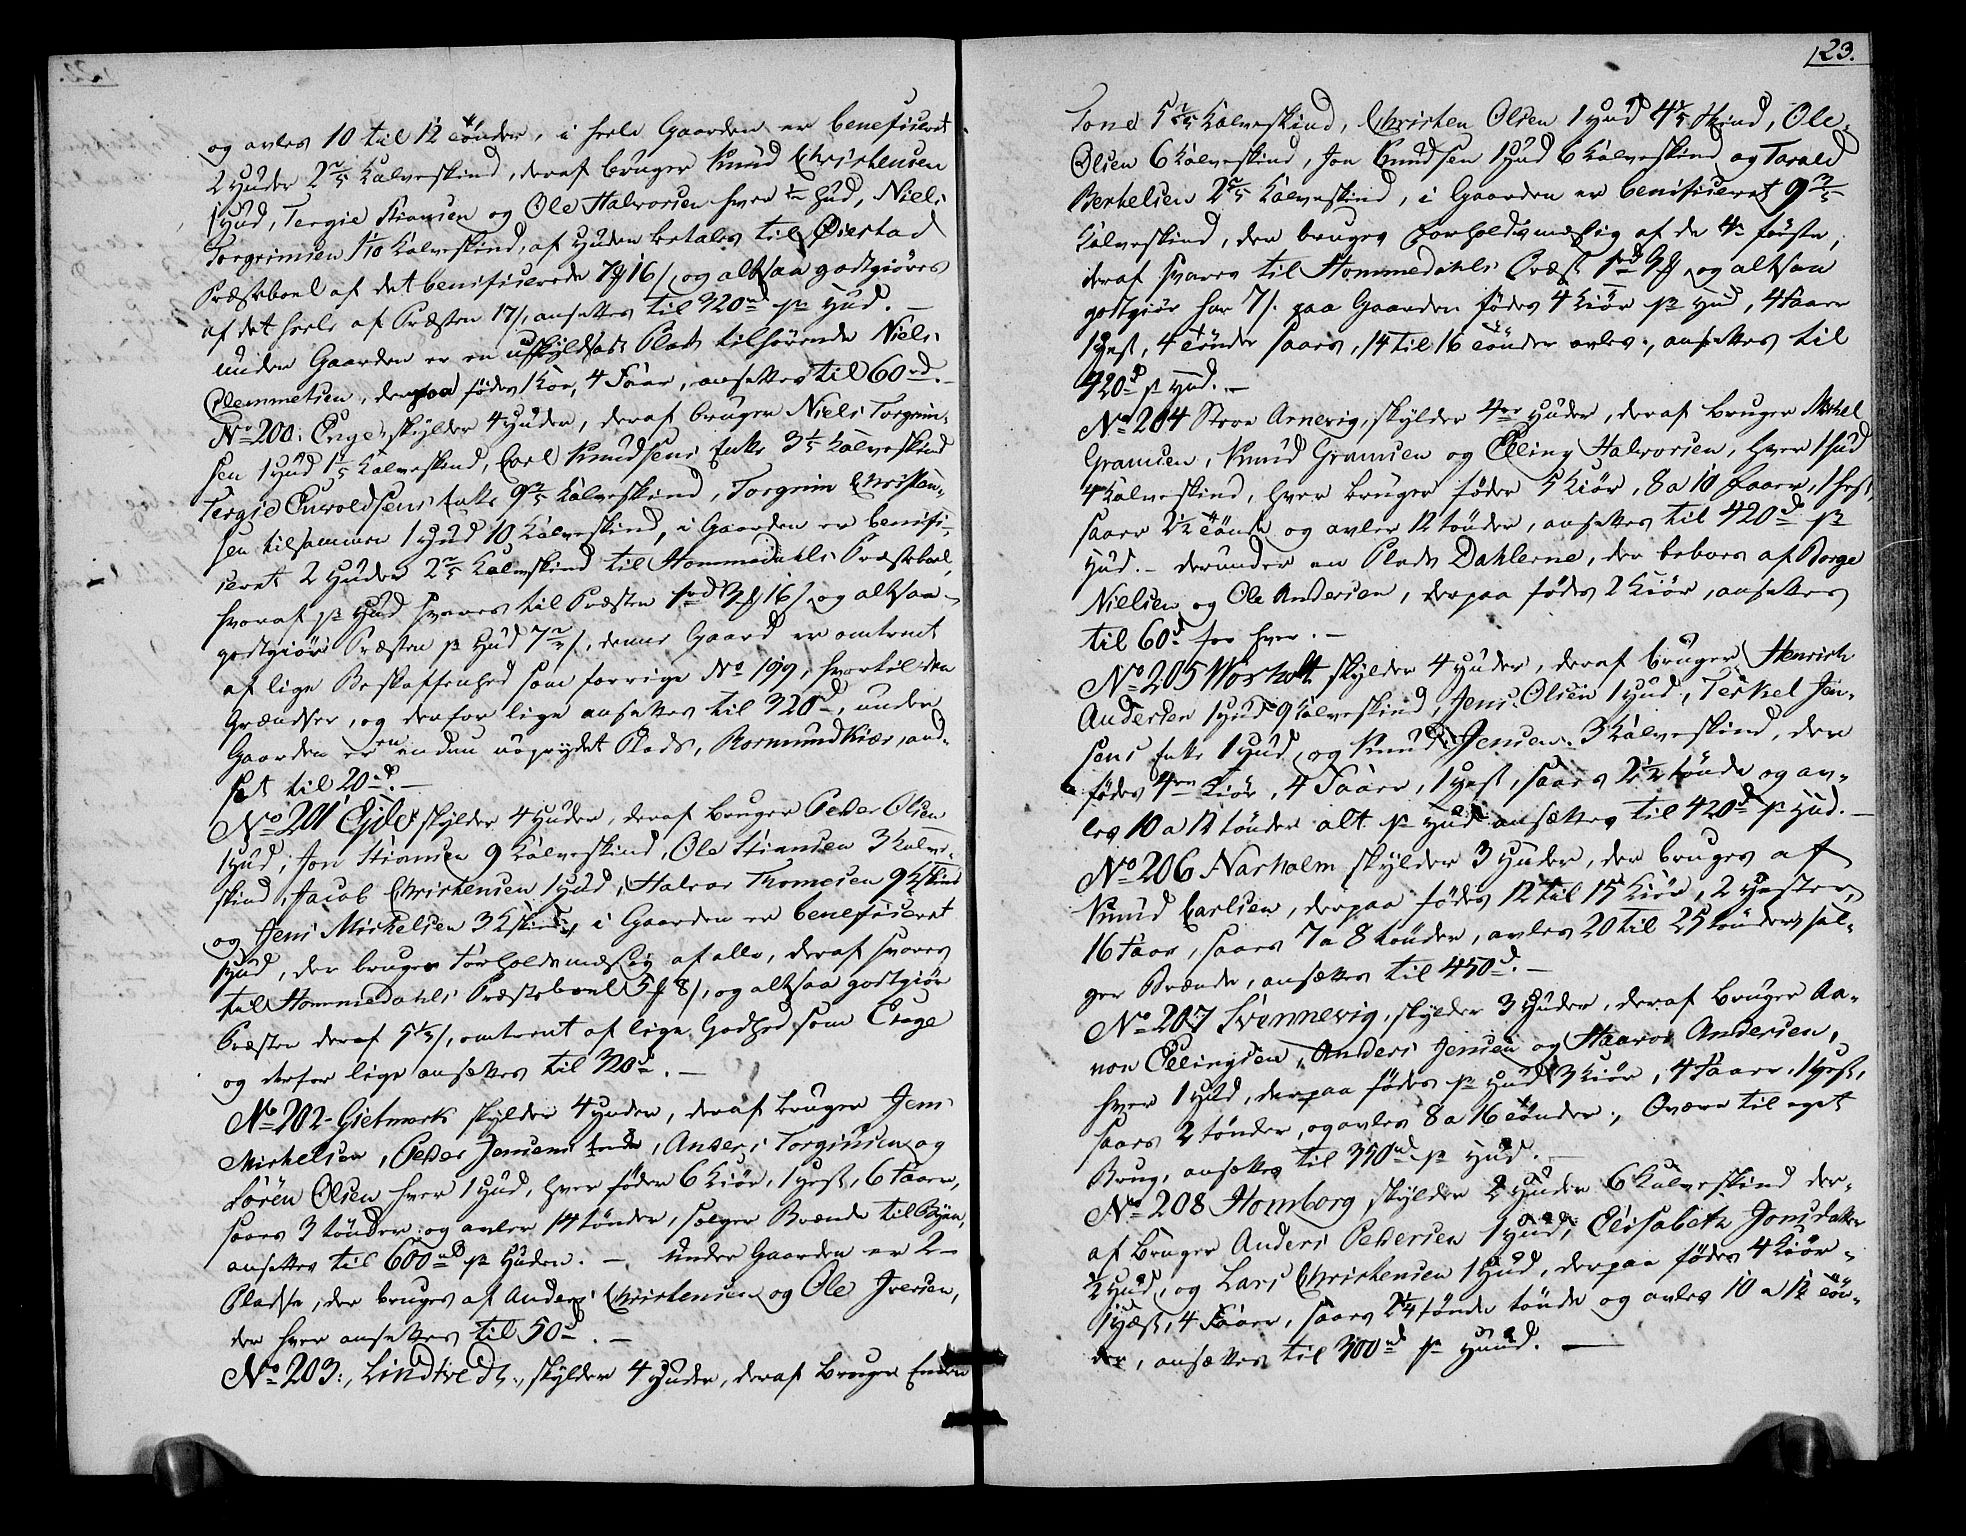 og avles 10 til 12 tönder, i heele Gaarden er beneficeret
2 Huder 2 2/5 Kalveskind, deraf bruger Knud Christensen
1 Hud, Tergie Stiansen og Ole Halvorsen hver ½ Hud, Niels
Torgrimsen 1/10 Kalveskind, af Huden betales til Øiestad
Præsteboel af det beneficerede 16 s. og altsaa godtgiöres
af det heele af Præsten 17 s. ansettes til 320 rd pr Hud. —
under Gaarden er en uskyldsat Plads tilhörende Niels
Clemmetsen, derpaa födes 1 Koe, 4 Faar, ansettes til 60 rd. —
No 200. Enge skylder 4 Huder, deraf bruger Niels Torgrim-
sen 1 Hud 1 1/5 Kalveskind, Carl Knudsens Enke 3 1/5 Kalveskind
Tergie Enke 9 2/5 Kalveskind, Torgrim Christian-
sen tilsammen 1 Hud 10 Kalveskind, i Gaarden er benifi-
ceret 2 Huder 2 2/5 Kalveskind til Hommedahls Præsteboel,
hvoraf pr Hud svares til Præsten 1 rd 3 16 s. og altsaa
godtgiör Præsten pr Hud 7 2/3 s, denne Gaard er omtrent
af lige Beskaffenhed som forrige No 199, hvortil den
Grændser, og derfor lige ansettes til 320 rd, under
Gaarden er en uoprydet Plads, Rormundkiær, and-
sat til 20 rd. —
No 201 Eide skylder 4 Huder, deraf bruger Peder Olsen
1 Hud, Jon Stiansen 9 Kalveskind, Ole Stiansen 3 Kalve-
skind, Jacob Christensen 1 Hud, Halvor Thomesen 9 Kskind
og Jens Mickelsen 3 Kskind, i Gaarden er beneficeret
1 Hud, der bruges forholdsmæssig af alle, deraf svares
til Hommedahls Præsteboel 8 s, og altsaa godtgiör
Præsten deraf 5 1/3 s, omtrent af lige Godhed som Enge
og derfor lige ansettes til 320 rd. —
No 202 Gietmork skylder 4 Huder, deraf bruger Jens
Mickelsen, Peder Jensens Enke, Anders Torgiusen og
Sören Olsen hver 1 Hud, hver föder 6 Kiör, 1 Hest, 6 Faarer,
saaer 3 tönder, og avler 14 tönder, sælger Brænde til Byen,
ansettes til 600 rd pr Huden. — Under Gaarden er 2
Pladse, der bruges af Anders Christensen og Ole Iversen,
der hver ansettes til 50 rd. —
No 203. Lindtvedt, skylder 4 Huder, deraf bruger Enken
123.
Tone 5 2/5 Kalveskind, Christen Olsen 1 Hud 4 4/5 Skind, Ole
Olsen 6 Kalveskind, Jon Knudsen 1 Hud 6 Kalveskind og Tarald
Berthelsen 2 2/5 Kalveskind, i Gaarden er benificeret 9 3/5
Kalveskind, der bruges forholdsmæssig af de 4re förste,
deraf svares til Hommedahls Præst og altsaa
godtgiör han 7 s. paa Gaarden födes 4 Kiör pr Hud, 4 Faarer
1 Hest, 4 tönder saaes, 14 til 16 tönder avles, ansettes til
420 rd pr Hud. —
No 204 Store Arnevig, skylder 4re Huder, deraf bruger Mickel
Gramsen, Knud Gramsen og Elling Halvorsen, hver 1 Hud
4 Kalveskind, hver bruger föder 5 Kiör, 8 a 10 Faarer, 1 Hest,
saaer 2½ tönde og avler 12 tönder, ansettes til 420 rd pr
Hud. — derunder en Plads Dahlerne, der beboes af Borge
Nielsen og Ole Andersen, derpaa födes 2 Kiör, ansettes
til 60 rd for hver. —
No 205 Morholt skylder 4 Huder, deraf bruger Henrich
Andersen 1 Hud 9 Kalveskind, Jens Olsen 1 Hud, Terkel Jen-
sens Enke 1 Hud, og Knud Jensen 3 Kalveskind, der
födes 4re Kiör, 4 Faarer, 1 Hest, saaes 2½ tönde og av-
les 10 a 12 tönder alt pr Hud ansættes til 420 rd pr Hud. —
No 206 Narholm skylder 3 Huder, der bruges af
Knud Carlsen, derpaa födes 12 til 15 Kiör, 2 Hester,
16 Faar, saaes 7 a 8 tönder, avles 20 til 25 tönder, sæl-
ger Brænde, ansættes til 450 rd. —
No 207 Svennevig, skylder 3 Huder, deraf bruger Aa-
non Ellingsen, Anders Jensen og Haavor Andersen,
hver 1 Hud, derpaa födes pr Hud 3 Kiör, 4 Faarer, 1 Hest,
saaes 2 tönder, og avles 8 a 16 tönder, Qværn til eget
Brug, ansettes til 350 rd pr Hud. —
No 208 Homborg skylder 2 Huder 6 Kalveskind der-
af bruger Anders Pedersen 1 Hud, Elisabeth Jonsdatter
½ Hud, og Lars Christensen 1 Hud, derpaa födes 4 Kiör
1 Hest, 4 Faarer, saaes 2¼ tönde tönde og avles 10 a 12 tön-
der, ansættes til 300 rd pr Huud. —